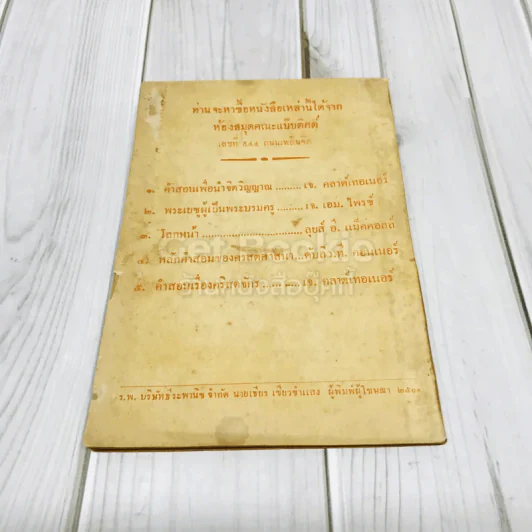 ท่านจะหาซื้อหนังสือเหล่านี้ได้จาก
ห้องสมุดคณะแบ๊บติสต์
เลขที่ ๕๔๔ ถนนเพลินจิต
๑. คำสอนเพื่อนำจิตวิญญาณ ......... เจ. คลาค์เทอเนอร์
๒. พระเยซูผู้เป็นพระบรมครู ......... เจ. เอม. ไพรซ์
๓. โลกหน้า ......... ลุยส์ อี. แม็คคอลล์
๔. หลักคำสอนของคริสตศาสนา ... ดับลิว.ที. คอนเนอร์
๕. คำสอนเรื่องคริสตจักร ......... เจ. คลาค์เทอเนอร์
Get Bookie
ร้านหนังสือบุ๊คกี้
ร.พ. บริษัท จำกัด นายเขียร ผู้พิมพ์ผู้โฆษณา